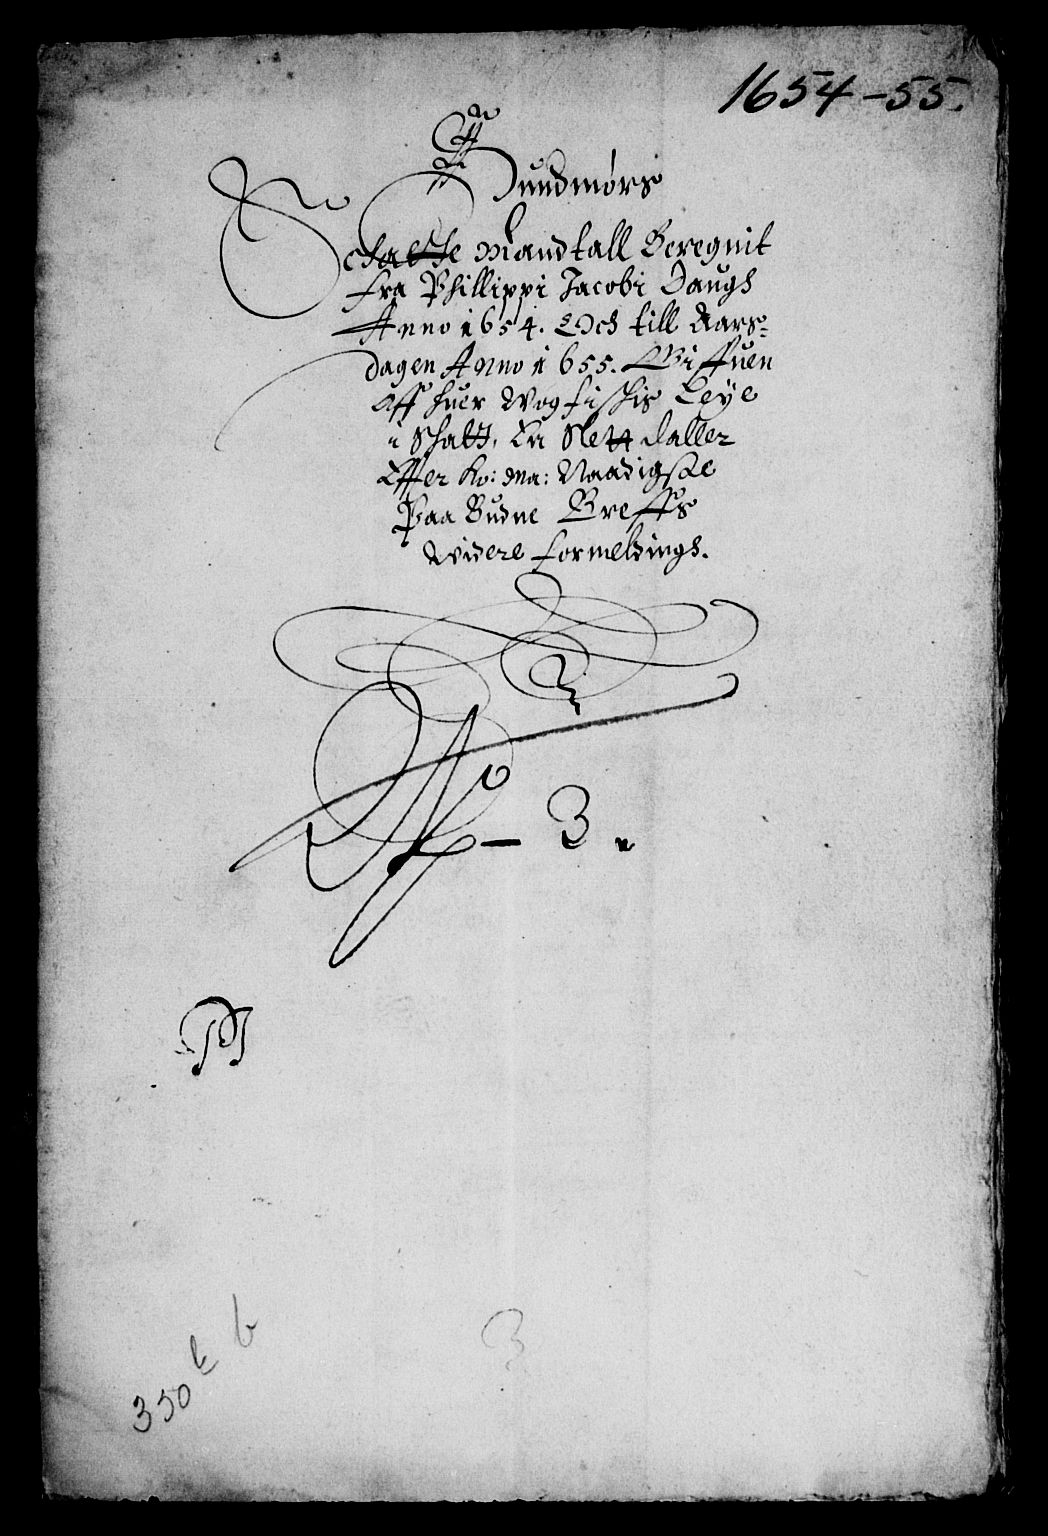 1654-55.
Sundmørs
Schatte Mandtall Beregnit
fra Phillippi Jacobi Daugh
Anno 1654. Och till Aars-
dagen Anno 1655. Giffuen
Aff huer Wog fischis Leye
i Schatt, En Slett daller
Effter Ko: Ma: Naadigste
Paa Budne Breffs
Widere formeldingh.
No - 3.
3
350